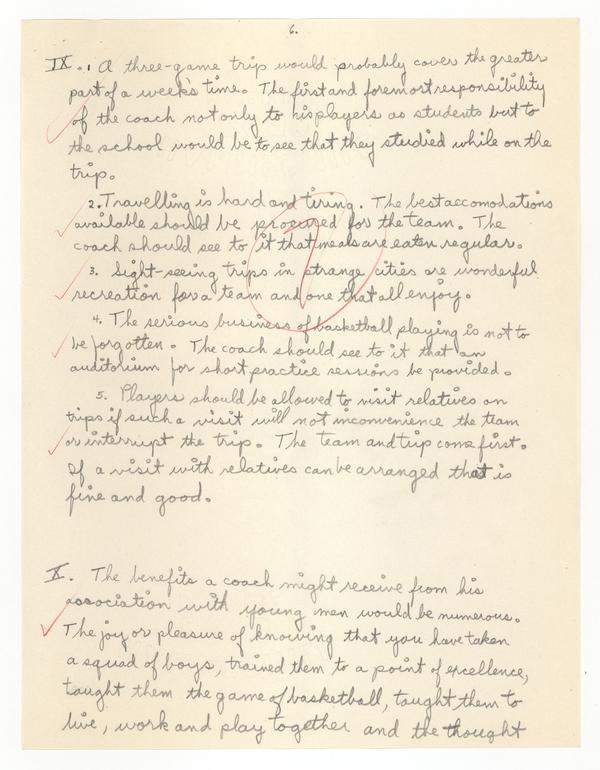 6.
IX. 1 A three-game trip would probably cover the greater
part of a week's time. The first and foremost responsibility
of the coach not only to his players as students but to
the school would be to see that they studied while on the
trip.
2. Travelling is hard and tiring. The best accomodations
available should be procured for the team. The
coach should see to it that meals are eaten regular.
3. Sight-seeing trips in strange cities are wonderful
recreation for a team and one that all enjoy.
4. The serious business of basketball playing is not to
be forgotten. The coach should see to it that an
auditorium for short practice sessions be provided.
5. Players should be allowed to visit relatives on
trips if such a visit will not inconvenience the team
or interrupt the trip. The team and trip come first.
If a visit with relatives can be arranged that is
fine and good.
X. The benefits a coach might receive from his
association with young men would be numerous.
The joy or pleasure of knowing that you have taken
a squad of boys, trained them to a point of excellence,
taught them the game of basketball, taught them to
live, work and play together and the thought